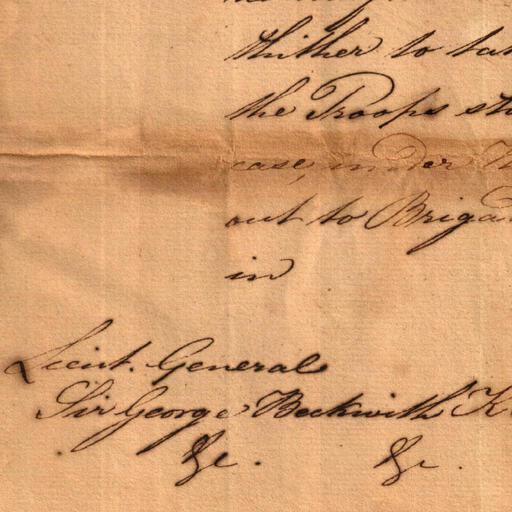 thither to
the Troops
case, under
out to
in
Lieut. General
Sir George Beckwith K
&c. &c.